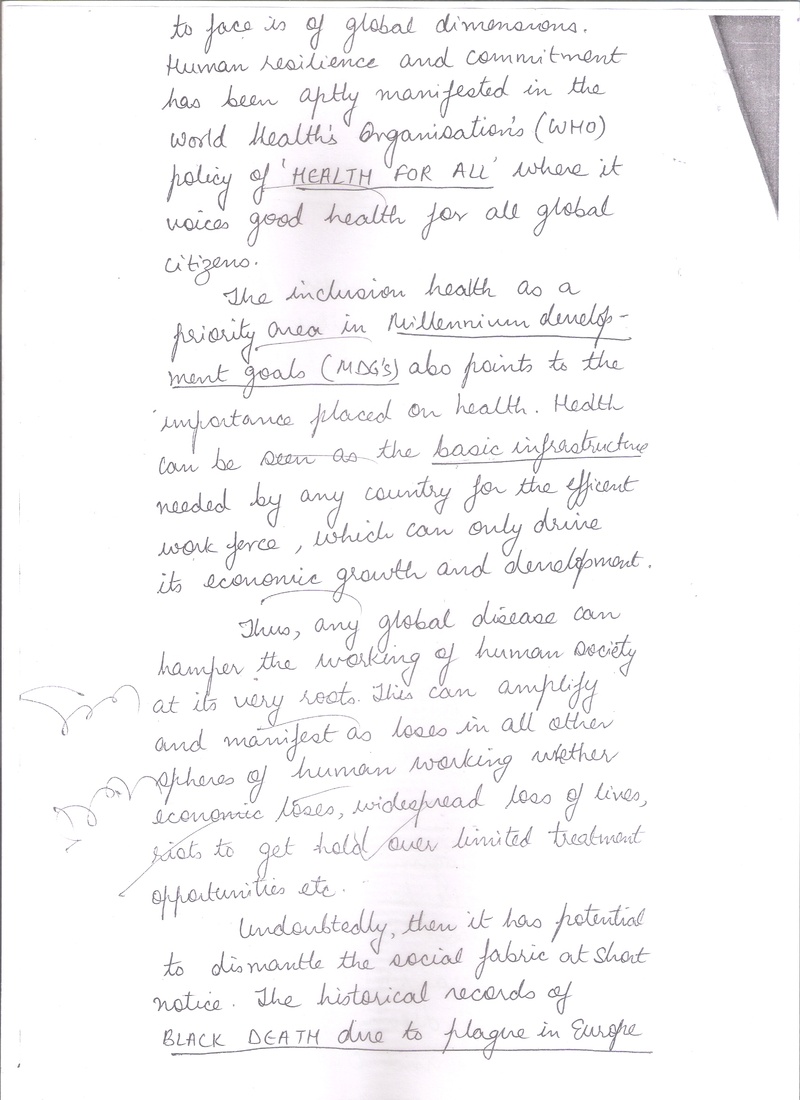 to face is of global dimensions.
Human resilience and commitment
has been aptly manifested in the
World Health's Organisation's (WHO)
policy of 'HEALTH FOR ALL' where it
voices good health for all global
citizens.
The inclusion health as a
priority area in Millennium develop-
ment goals (MDG's) also points to the
importance placed on health. Health
can be seen as the basic infrastructure
needed by any country for the efficent
work force, which can only drive
its economic growth and development.
Thus, any global disease can
hamper the working of human society
at its very roots. This can amplify
and manifest as loses in all other
spheres of human working whether
economic loses, widespread loss of lives,
riots to get hold over limited treatment
opportunities etc.
Undoubtedly, then it has potential
to dismantle the social fabric at short
notice. The historical records of
BLACK DEATH due to plague in Europe